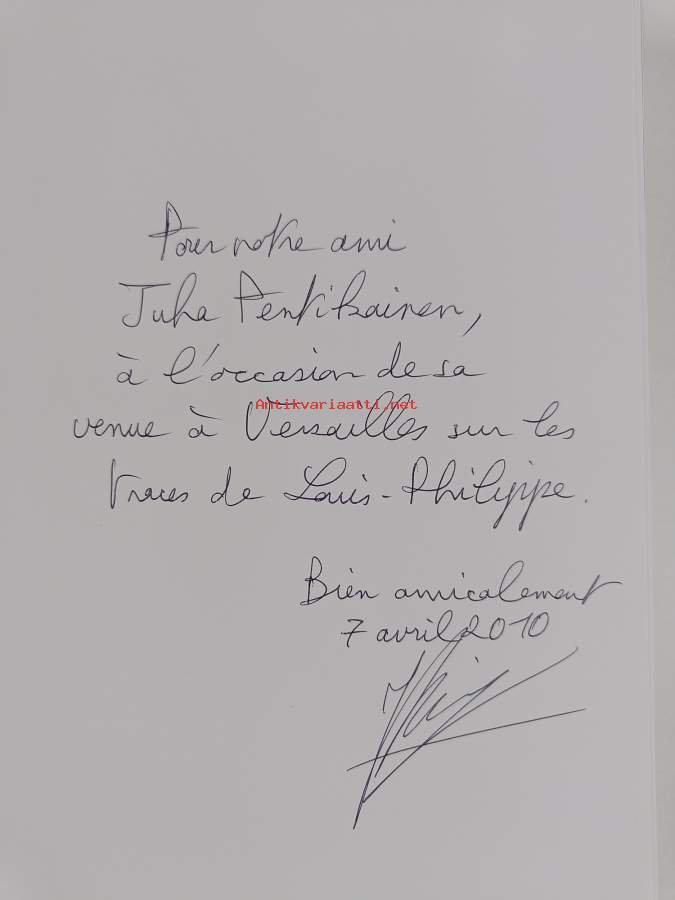 Pour notre ami
Juha Pentikainen,
à l'occasion de sa
Antikvariaatti.net
venue à Versailles sur les
traces de Louis-Philippe.
Bien amicalement
7 avril 2010